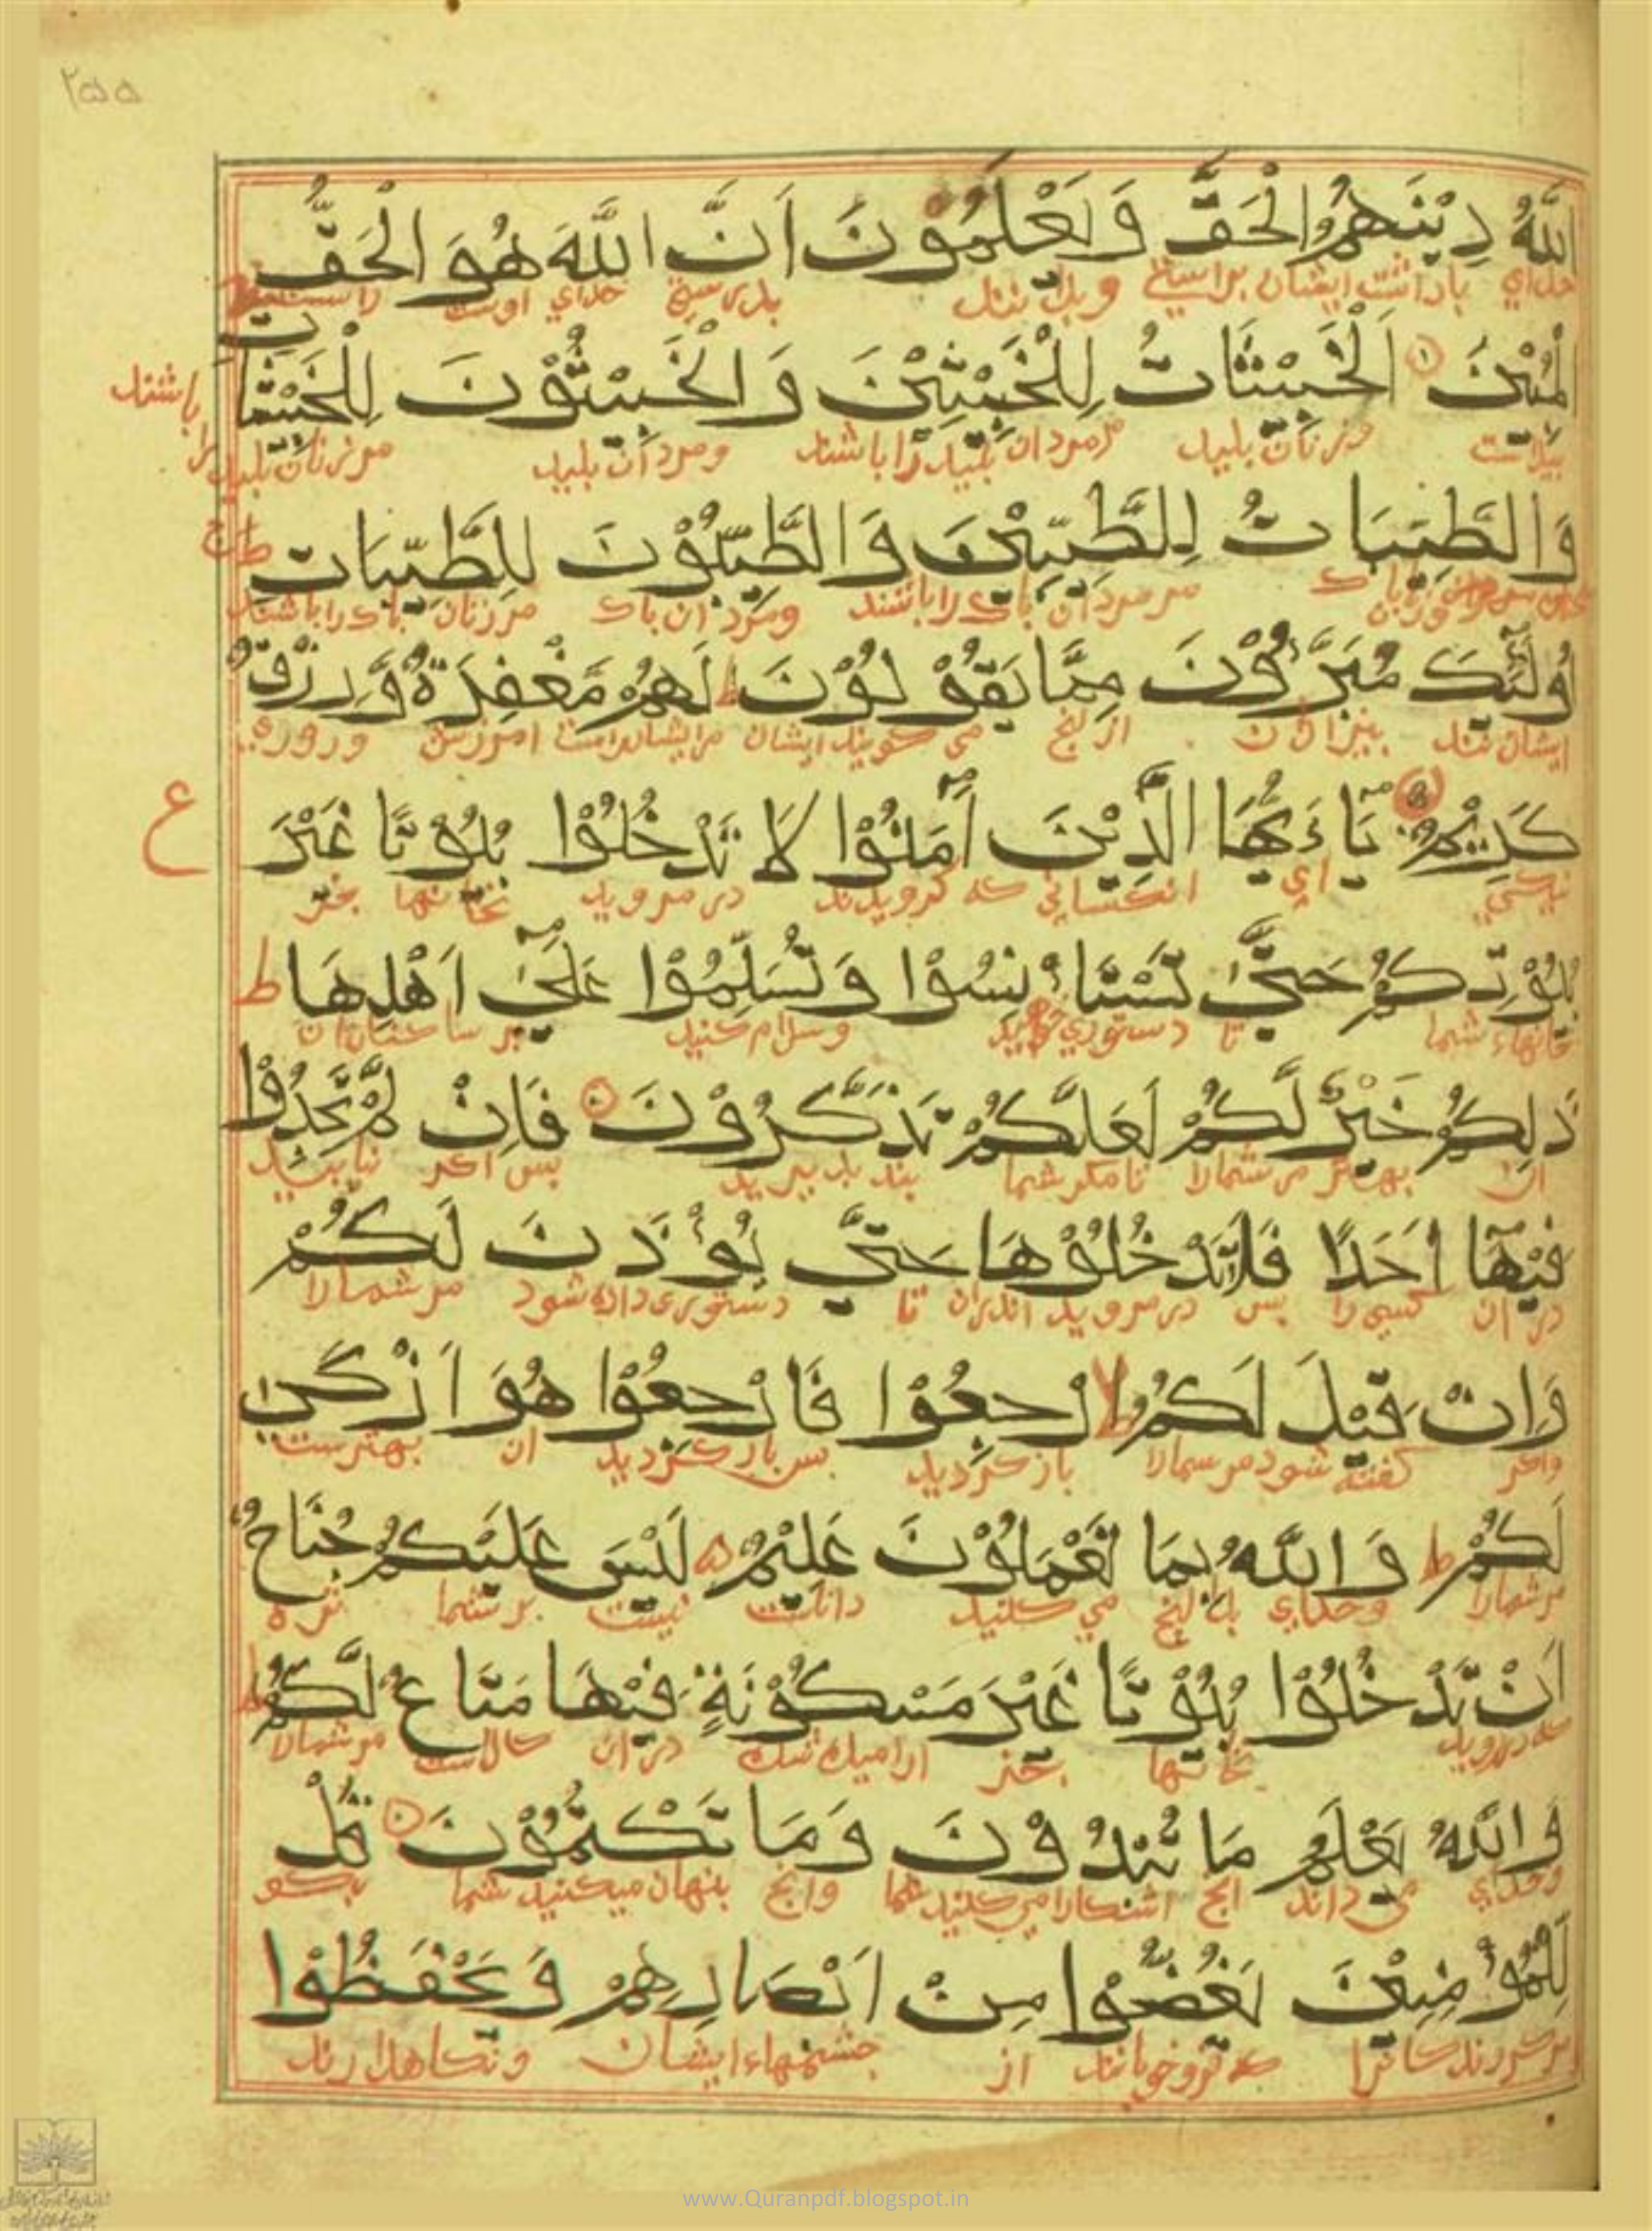 ٢٥٥
اللّٰهُ دِيْنَهُمُ الْحَقَّ وَيَعْلَمُوْنَ اَنَّ اللّٰهَ هُوَ الْحَقُّ
خدای پاداشت ایشان براستی و بدانند بدرستی خدای اوست
الْمُبِيْنَ اَلْخَبِيْثَاتُ لِلْخَبِيْثِيْنَ وَالْخَبِيْثُوْنَ لِلْخَبِيْثَاتِ
پیداست و زنان پلید مر مردان پلید را باشند و مردان پلید مر زنان پلید را باشند
وَالطَّيِّبَاتُ لِلطَّيِّبِيْنَ وَالطَّيِّبُوْنَ لِلطَّيِّبَاتِ ط ج
مر مردان پاك را باشند و مردان پاك مر زنان پاك را باشند
اُولٰٓئِكَ مُبَرَّءُوْنَ مِمَّا يَقُوْلُوْنَ ط لَهُمْ مَّغْفِرَةٌ وَّرِزْقٌ
ایشانند بیزاران از انچ می گویند ایشان مر ایشانراست امرزش و روزی
كَرِيْمٌ يَآءَيُّهَا الَّذِيْنَ اٰمَنُوْا لَا تَدْخُلُوْا بُيُوْتًا غَيْرَ
نیکی ای انکسانی که گرویدند در مروید بخانها بجز
ع
بُيُوْتِكُمْ حَتّٰى تَسْتَاْنِسُوْا وَتُسَلِّمُوْا عَلٰٓى اَهْلِهَا ط
خانهاء شما تا دستوری خواهید و سلام کنید بر ساکنان ان
ذٰلِكُمْ خَيْرٌ لَّكُمْ لَعَلَّكُمْ تَذَكَّرُوْنَ فَاِنْ لَّمْ تَجِدُوْا
ان بهتر مر شمارا تا مگر شما پند پذیرید پس اگر نیابید
فِيْهَآ اَحَدًا فَلَا تَدْخُلُوْهَا حَتّٰى يُؤْذَنَ لَكُمْ
در ان کسی را پس در مروید اندران تا دستوری داده شود مر شمارا
وَاِنْ قِيْلَ لَكُمُ ارْجِعُوْا فَارْجِعُوْا هُوَ اَزْكٰى
واگر گفته شود مر شمارا باز گردید پس باز گردید ان بهترست
لَكُمْ ط وَاللّٰهُ بِمَا تَعْمَلُوْنَ عَلِيْمٌ لَيْسَ عَلَيْكُمْ جُنَاحٌ
مر شمارا وخدای بدانچ می کنید داناست نیست بر شما بزه
اَنْ تَدْخُلُوْا بُيُوْتًا غَيْرَ مَسْكُوْنَةٍ فِيْهَا مَتَاعٌ لَّكُمْ ط
که در روید بخانها بجز ارامیده شده در ان کالاست مر شمارا
وَاللّٰهُ يَعْلَمُ مَا تُبْدُوْنَ وَمَا تَكْتُمُوْنَ قُلْ
وخدای می داند انچ اشکارا می کنید شما وانچ پنهان میکنید شما بگو
لِلْمُؤْمِنِيْنَ يَغُضُّوْا مِنْ اَبْصَارِهِمْ وَيَحْفَظُوْا
مر گروندگانرا که فرو خوابانند از چشمهاء ایشان و نگاه دارند
www.Quranpdf.blogspot.in